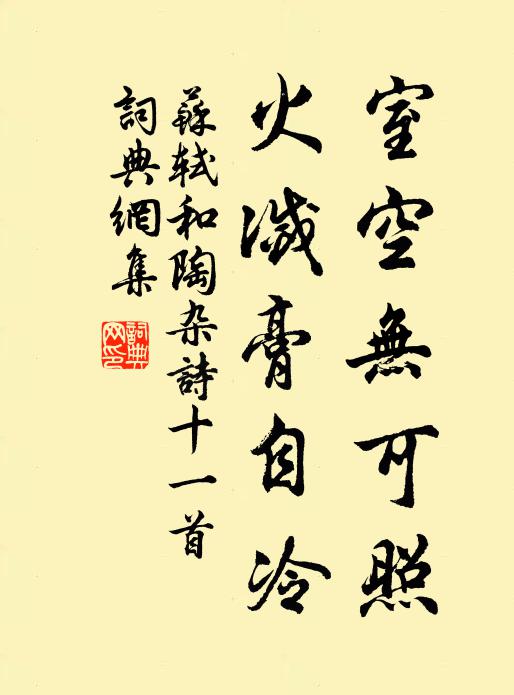 室空無可照
火滅膏自冷
蘇軾和陶杂詩十一首
詞典網集
詞典網印